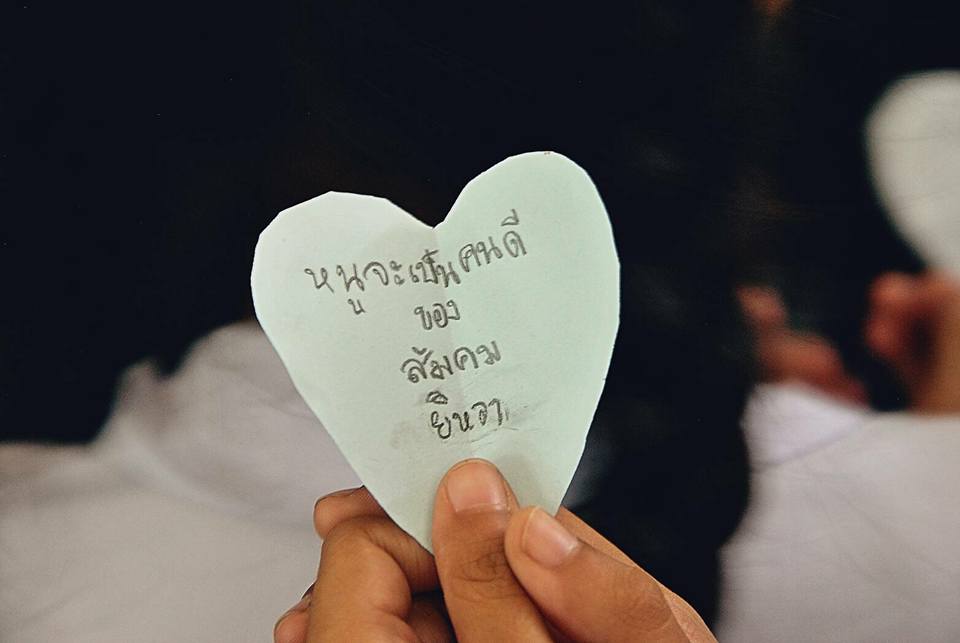 หนูจะเป็นคนดี
ของ
ส้มคม
ยิหวา